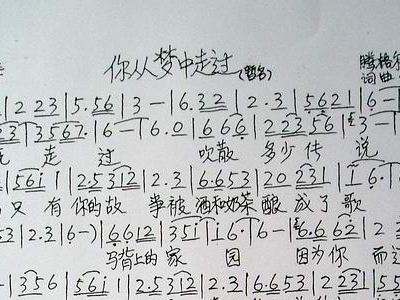 你从梦中走过 (暂名) 腾格尔
词曲
1 2 23 | 5.56 | 3 — | 6.32 | 2.3 | 5621 | 6 —
23 | 3567. | 6 — | 6.0 | 666 | 22356 | 3 — |
走 过 吹散 多少传 说
| 56i | 25312 | 2.3 | 6.653 | 20 231 | i 6.
只 有你的故 事被酒和奶茶酿 成了 歌
53 | 2.3 | 6 —) | 6612 | 35i | i6. | 6 — | 6.662 | 2
马背上的家 园 因为你 而
356 | 56i | 2.5312 | 2.3 | 6.653 | 2 231